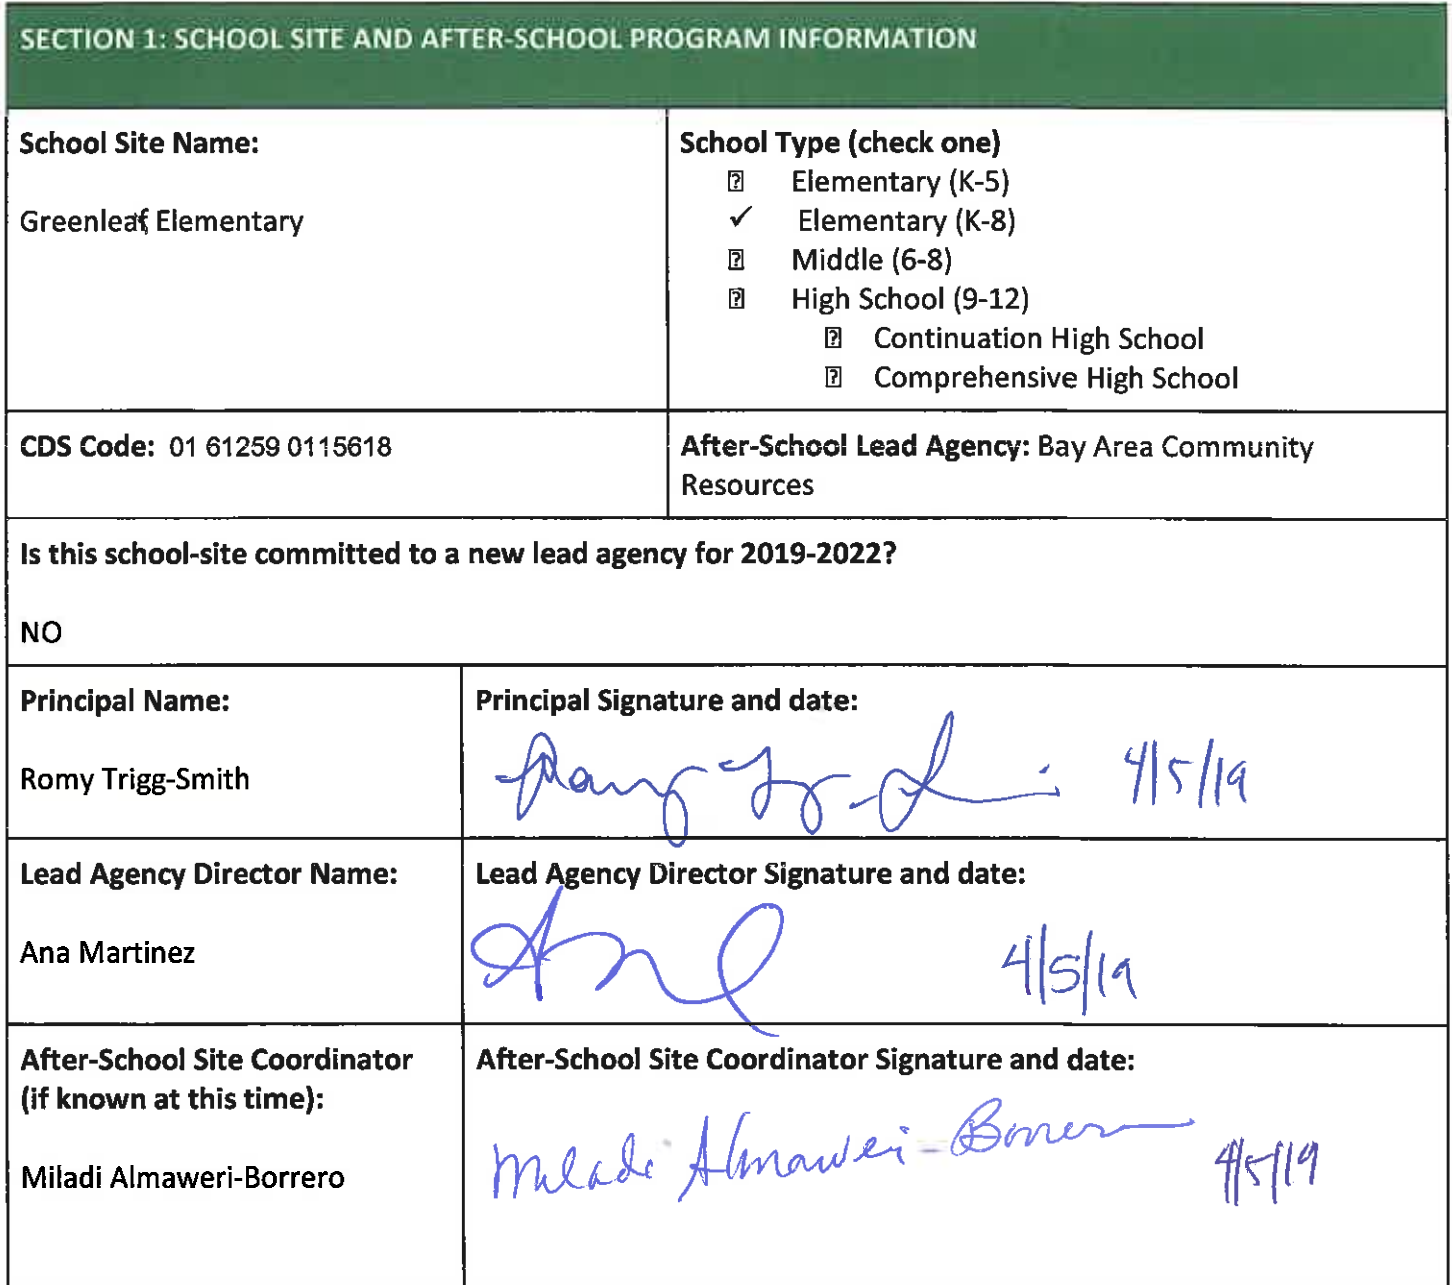 SECTION 1: SCHOOL SITE AND AFTER-SCHOOL PROGRAM INFORMATION
School Site Name:
Greenleaf Elementary
School Type (check one)
Elementary (K-5)
✓ Elementary (K-8)
Middle (6-8)
High School (9-12)
Continuation High School
Comprehensive High School
CDS Code: 01 61259 0115618
After-School Lead Agency: Bay Area Community
Resources
Is this school-site committed to a new lead agency for 2019-2022?
NO
Principal Name:
Romy Trigg-Smith
Principal Signature and date:
4/5/19
Lead Agency Director Name:
Ana Martinez
Lead Agency Director Signature and date:
4/5/19
After-School Site Coordinator
(if known at this time):
Miladi Almaweri-Borrero
After-School Site Coordinator Signature and date:
Miladi Almaweri-Borrero 4/5/19